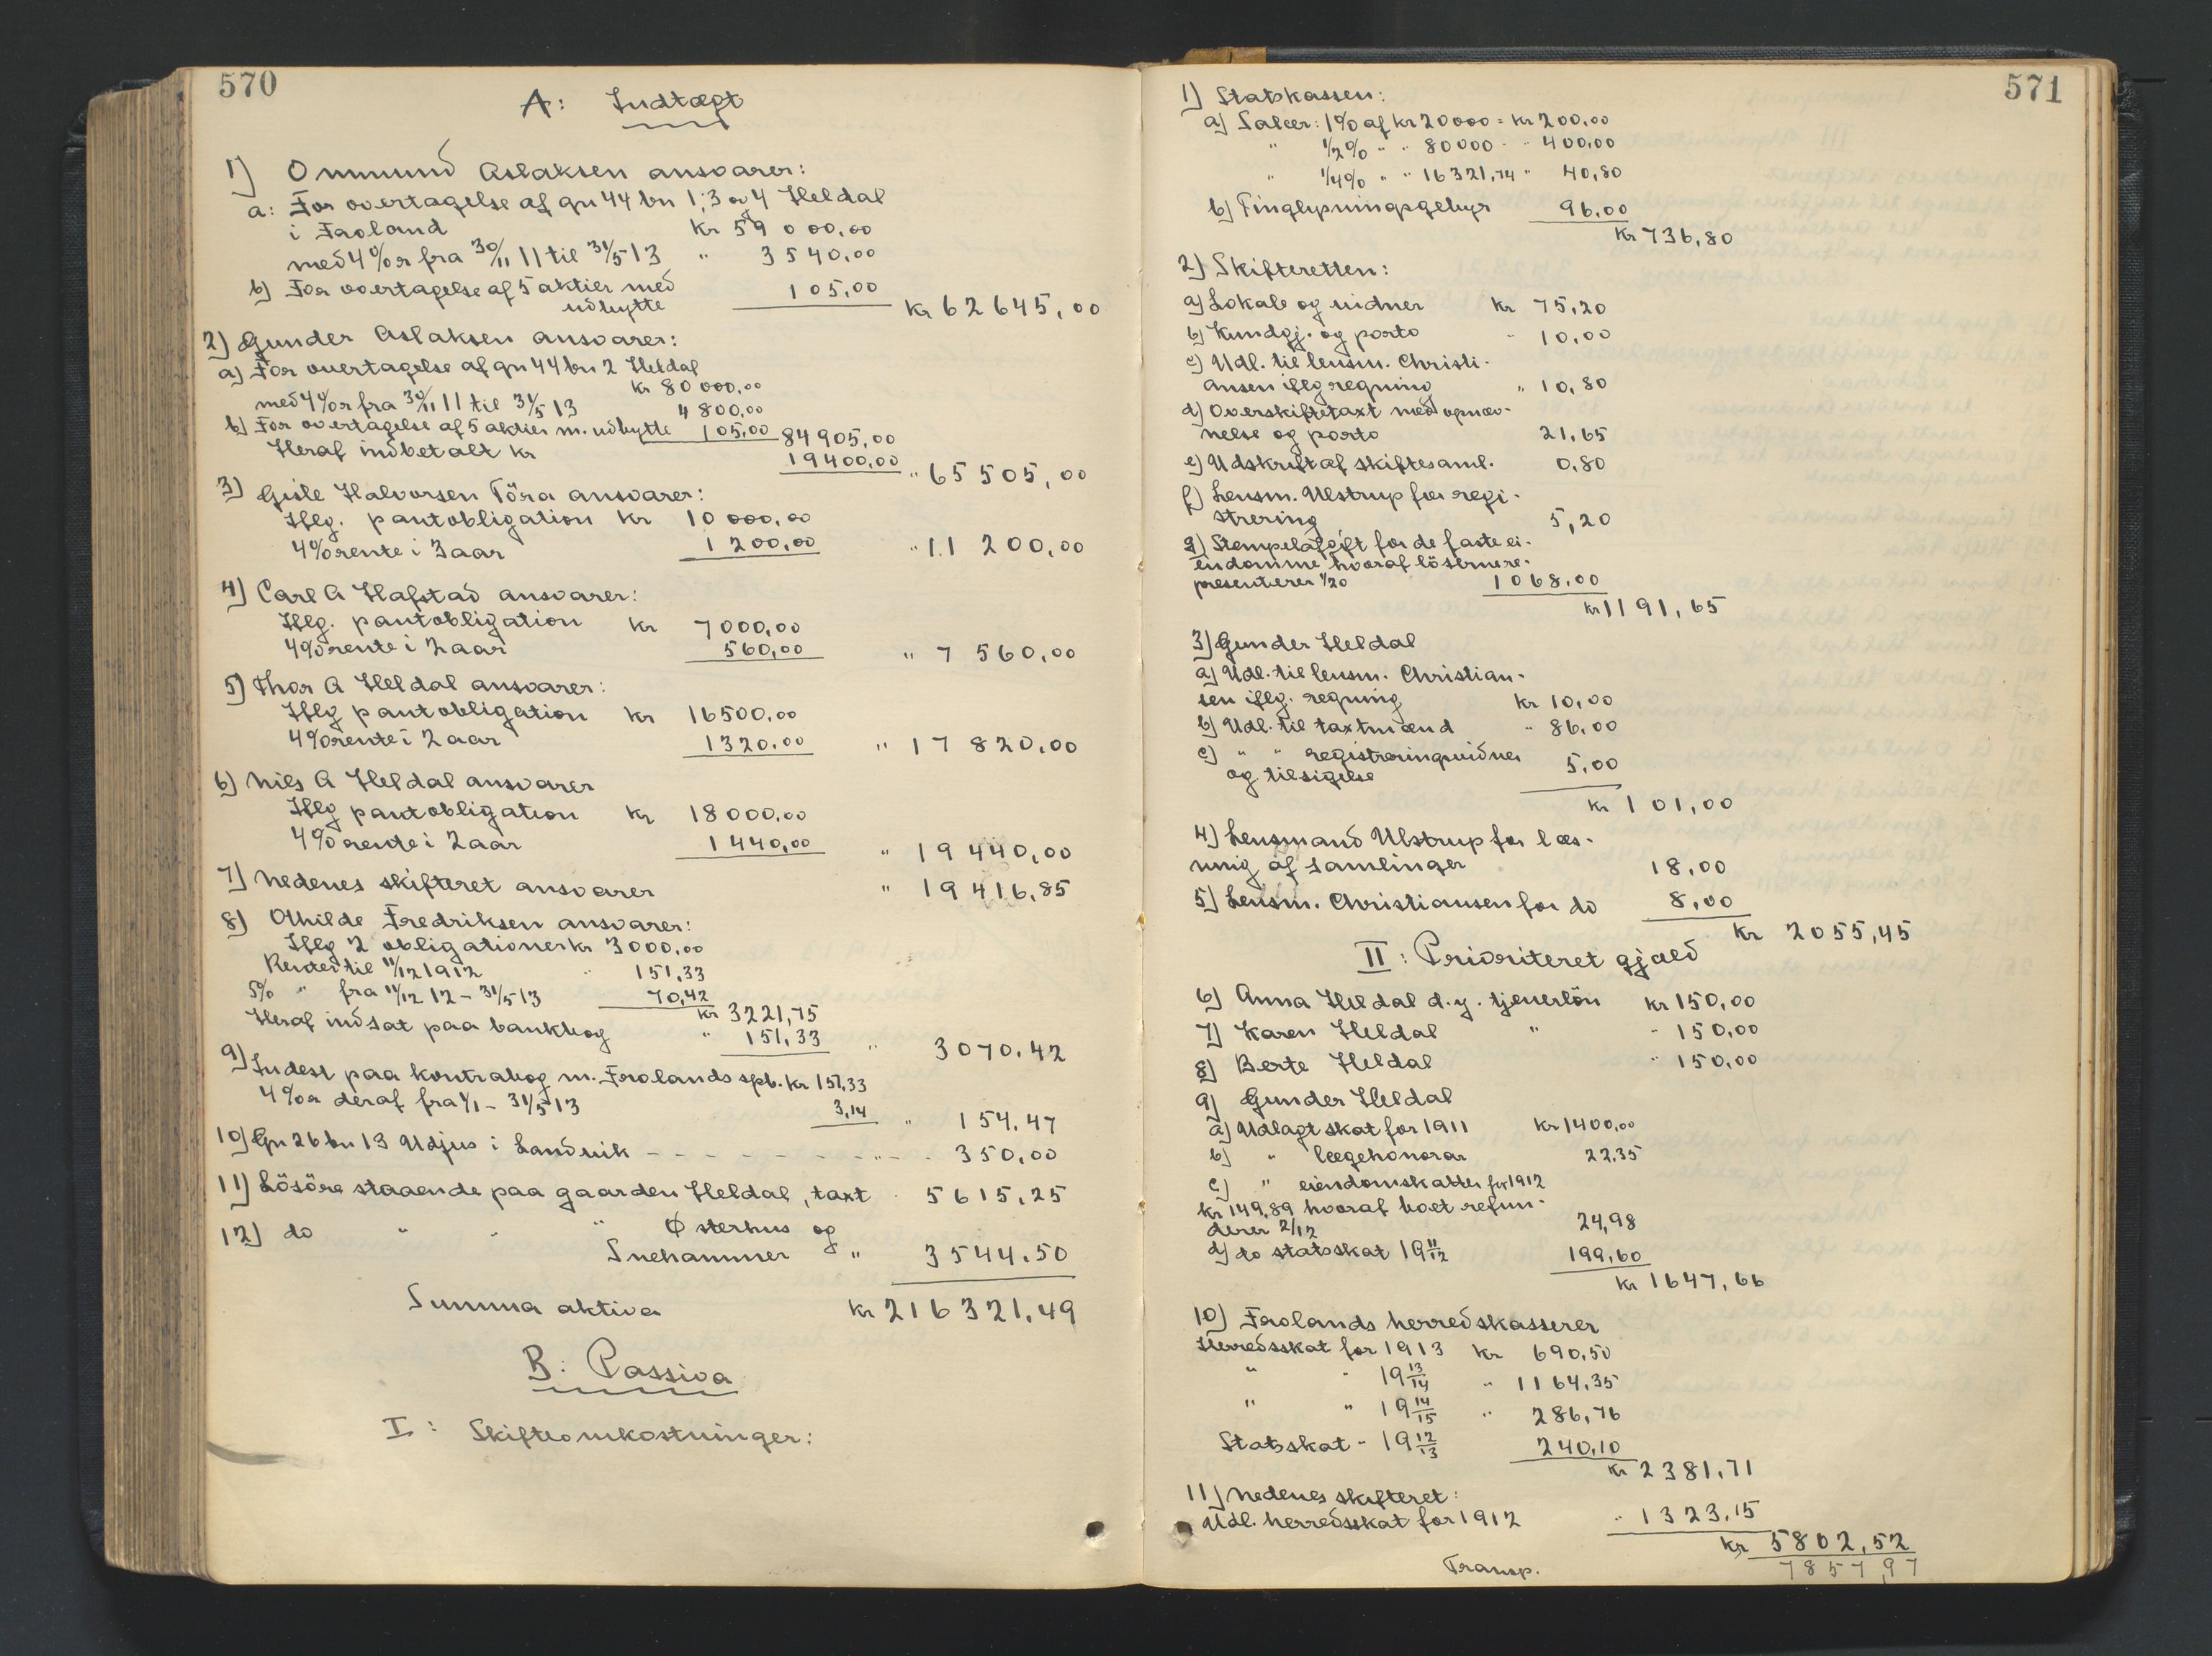 570
A: Indtægt
1) Ommund Aslaksen ansvarer:
a: For overtagelse af gn 44 bn 1, 3 og 4 Heldal
i Froland kr 59 000,00
med 4% r fra 30/11 11 til 31/5 13 " 3540,00
b) For overtagelse af 5 aktier med
udbytte 105,00 kr 62645,00
2) Gunder Aslaksen ansvarer:
a) For overtagelse af gn 44 bn 2 Heldal
kr 80 000,00
med 4% r fra 30/11 11 til 31/5 13 4 800,00
b) For overtagelse af 5 aktier m. udbytte 105,00 84905,00
Heraf indbetalt kr 19400,00 " 65505,00
3) Gisle Halvorsen Töra ansvarer:
Iflg. pantobligation kr 10 000,00
4% rente i 3 aar 1 200,00 " 11 200,00
4) Carl A Hafstad ansvarer:
Iflg. pantobligation kr 7000,00
4% rente i 2 aar 560,00 " 7 560,00
5) Thor A Heldal ansvarer:
Iflg pantobligation kr 16500,00
4% rente i 2 aar 1320,00 " 17 820,00
6) Niels A Heldal ansvarer
Iflg pantobligation kr 18000,00
4% rente i 2 aar 1440,00 " 19 440,00
7) Nedenes skifteret ansvarer " 19416,85
8) Othilde Fredriksen ansvarer:
Iflg 2 obligationer kr 3000,00
Renter til 11/12 1912 " 151,33
5% " fra 11/12 12 - 31/5 13 70,42
kr 3221,75
Heraf indsat paa bankbog " 151,33 " 3070,42
9) Indest paa kontrabog m. Frolands spb. kr 151,33
4% r deraf fra 1/1 - 31/5 13 3,14 " 154,47
10) Gn 26 bn 13 Udjus i Landvik - - - - - - - - " - - 350,00
11) Lösöre staaende paa gaarden Heldal, taxt " 5615,25
12) do " " " Østerhus og
Snehammer " 3544,50
Summa aktiva kr 216321,49
B: Passiva
I: Skifteomkostninger:
571
1) Statskassen:
a) Salær: 1% af kr 20000 = kr 200,00
" 1/2% " " 80000 - " 400,00
" 1/4% " " 16321,74 " 40,80
b) Tinglysningsgebyr 96,00
kr 736,80
2) Skifteretten:
a) Lokale og vidner kr 75,20
b) Kundgj. og porto " 10,00
c) Udl. til lensm. Christi-
ansen iflg regning " 10,80
d) Overskiftetaxt med opnæv-
nelse og porto 21,65
e) Udskrift af skiftesaml. 0,80
f) Lensm. Ulstrup for regi-
strering 5,20
g) Stempelafgift for de faste ei-
endomme hvoraf lösörne re-
presenterer 1/20 1068,00
kr 1191,65
3) Gunder Heldal
a) Udl. til lensm. Christian-
sen iflg. regning kr 10,00
b) Udl. til taxtmænd " 86,00
c) " " registreringsvidner
og tilsigelse 5,00
kr 101,00
4) Lensmand Ulstrup for læs-
ning af samlinger 18,00
5) Lensm. Christiansen for do 8,00
kr 2055,45
II: Prioriteret gjæld
6) Anna Heldal d.y. tjenerlön kr 150,00
7) Karen Heldal " " 150,00
8) Berte Heldal " 150,00
9) Gunder Heldal
a) Udlagt skat for 1911 kr 1400,00
b) " lægehonorar 22,35
c) " eiendomskatter for 1912
kr 149,89 hvoraf boet refun-
derer 2/12 24,98
d) do statsskat 19 11/12 199,60
kr 1647,66
10) Frolands herredskasserer
Herredsskat for 1913 kr 690,50
" " 19 13/14 " 1164,35
" " 19 14/15 " 286,76
Statsskat " 19 12/13 240,10
kr 2381,71
11) Nedenes skifteret:
Udl. herredsskat for 1912 " 1323,15
kr 5802,52
Transp. 7857,97